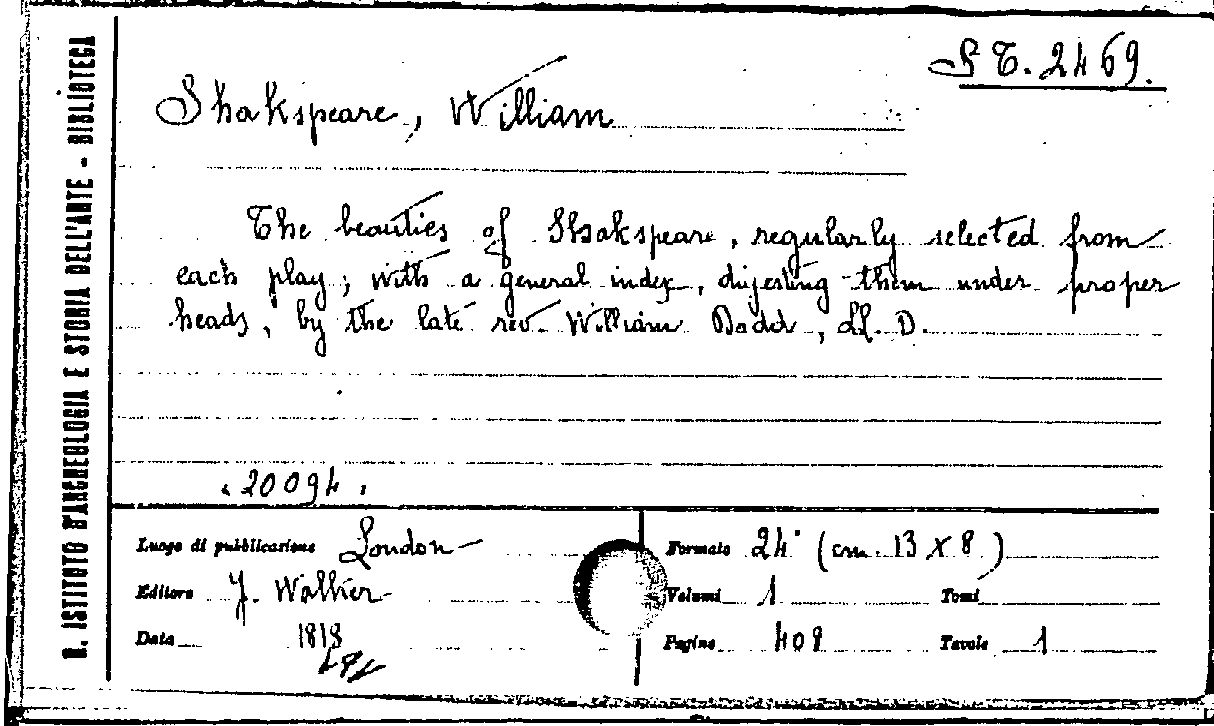 S T. 2469.
R. ISTITUTO D'ARCHEOLOGIA E STORIA DELL'ARTE - BIBLIOTECA
Shakspeare, William
The beauties of Shakspeare, regularly selected from
each play; with a general index, digesting them under proper
heads, by the late rev. William Dodd, LL. D.
20094
Luogo di pubblicazione London
Formato 24° (cm. 13 X 8)
Editore J. Walker
Volumi 1 Tomi
Data 1818
Pagine 408 Tavole 1